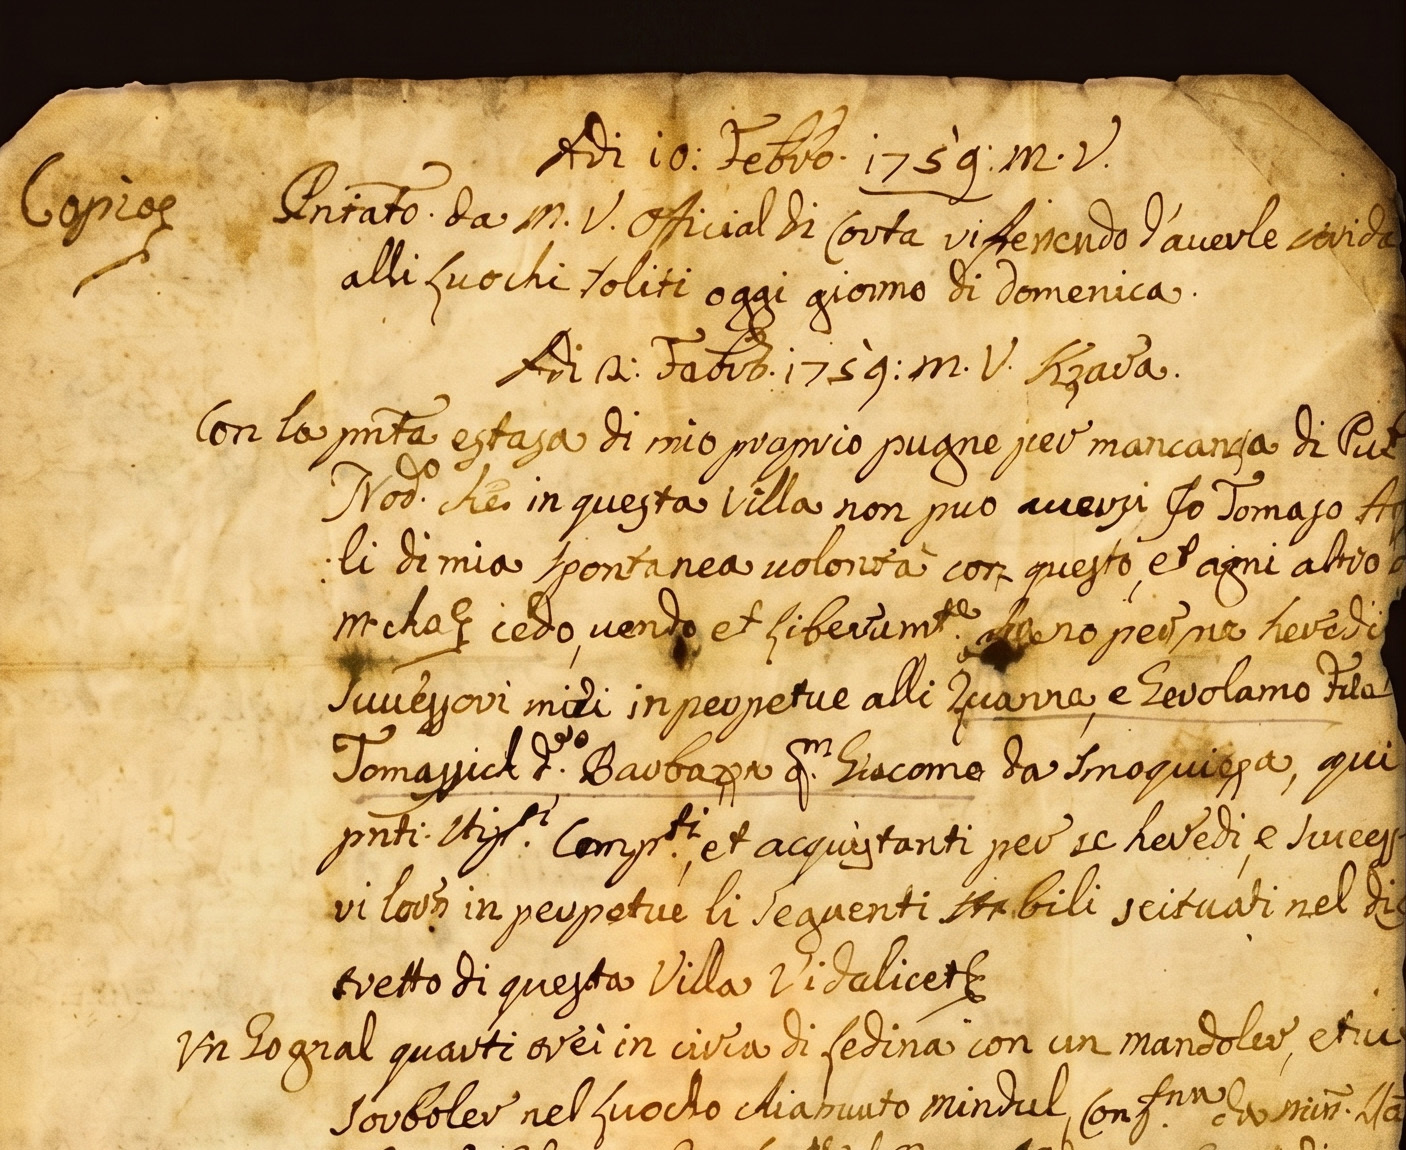 Adi 10: Febro. 1759: M. V.
Copioe
Pntato. da M. V. Official di Corta rifferendo d'auerle
alli Luochi soliti oggi giorno di domenica.
Adi 12: Febro. 1759: M. V. Kzara.
Con la pnta estasa di mio proprio pugne per mancanza di
Nodo. che in questa Villa non puo auersi Jo Tomaso
li di mia spontanea uolontà con questo, et ogni altro
cedo, uendo et Liberamte. per me heredi
Successori miei in perpetue alli Zuanne, e Gerolamo
Tomassich do. Barbazza qm. Giacomo da Smoquizza, qui
pnti. Stipti. Compti., et acquistanti per se heredi, e
ri loro in perpetue li seguenti stabili scituati nel dis
tretto di questa Villa Vidalicet
Vn Lognal quarti trei in circa di Ledina con un mandoler,
Sorboler nel Luocho chiamato Mindul,